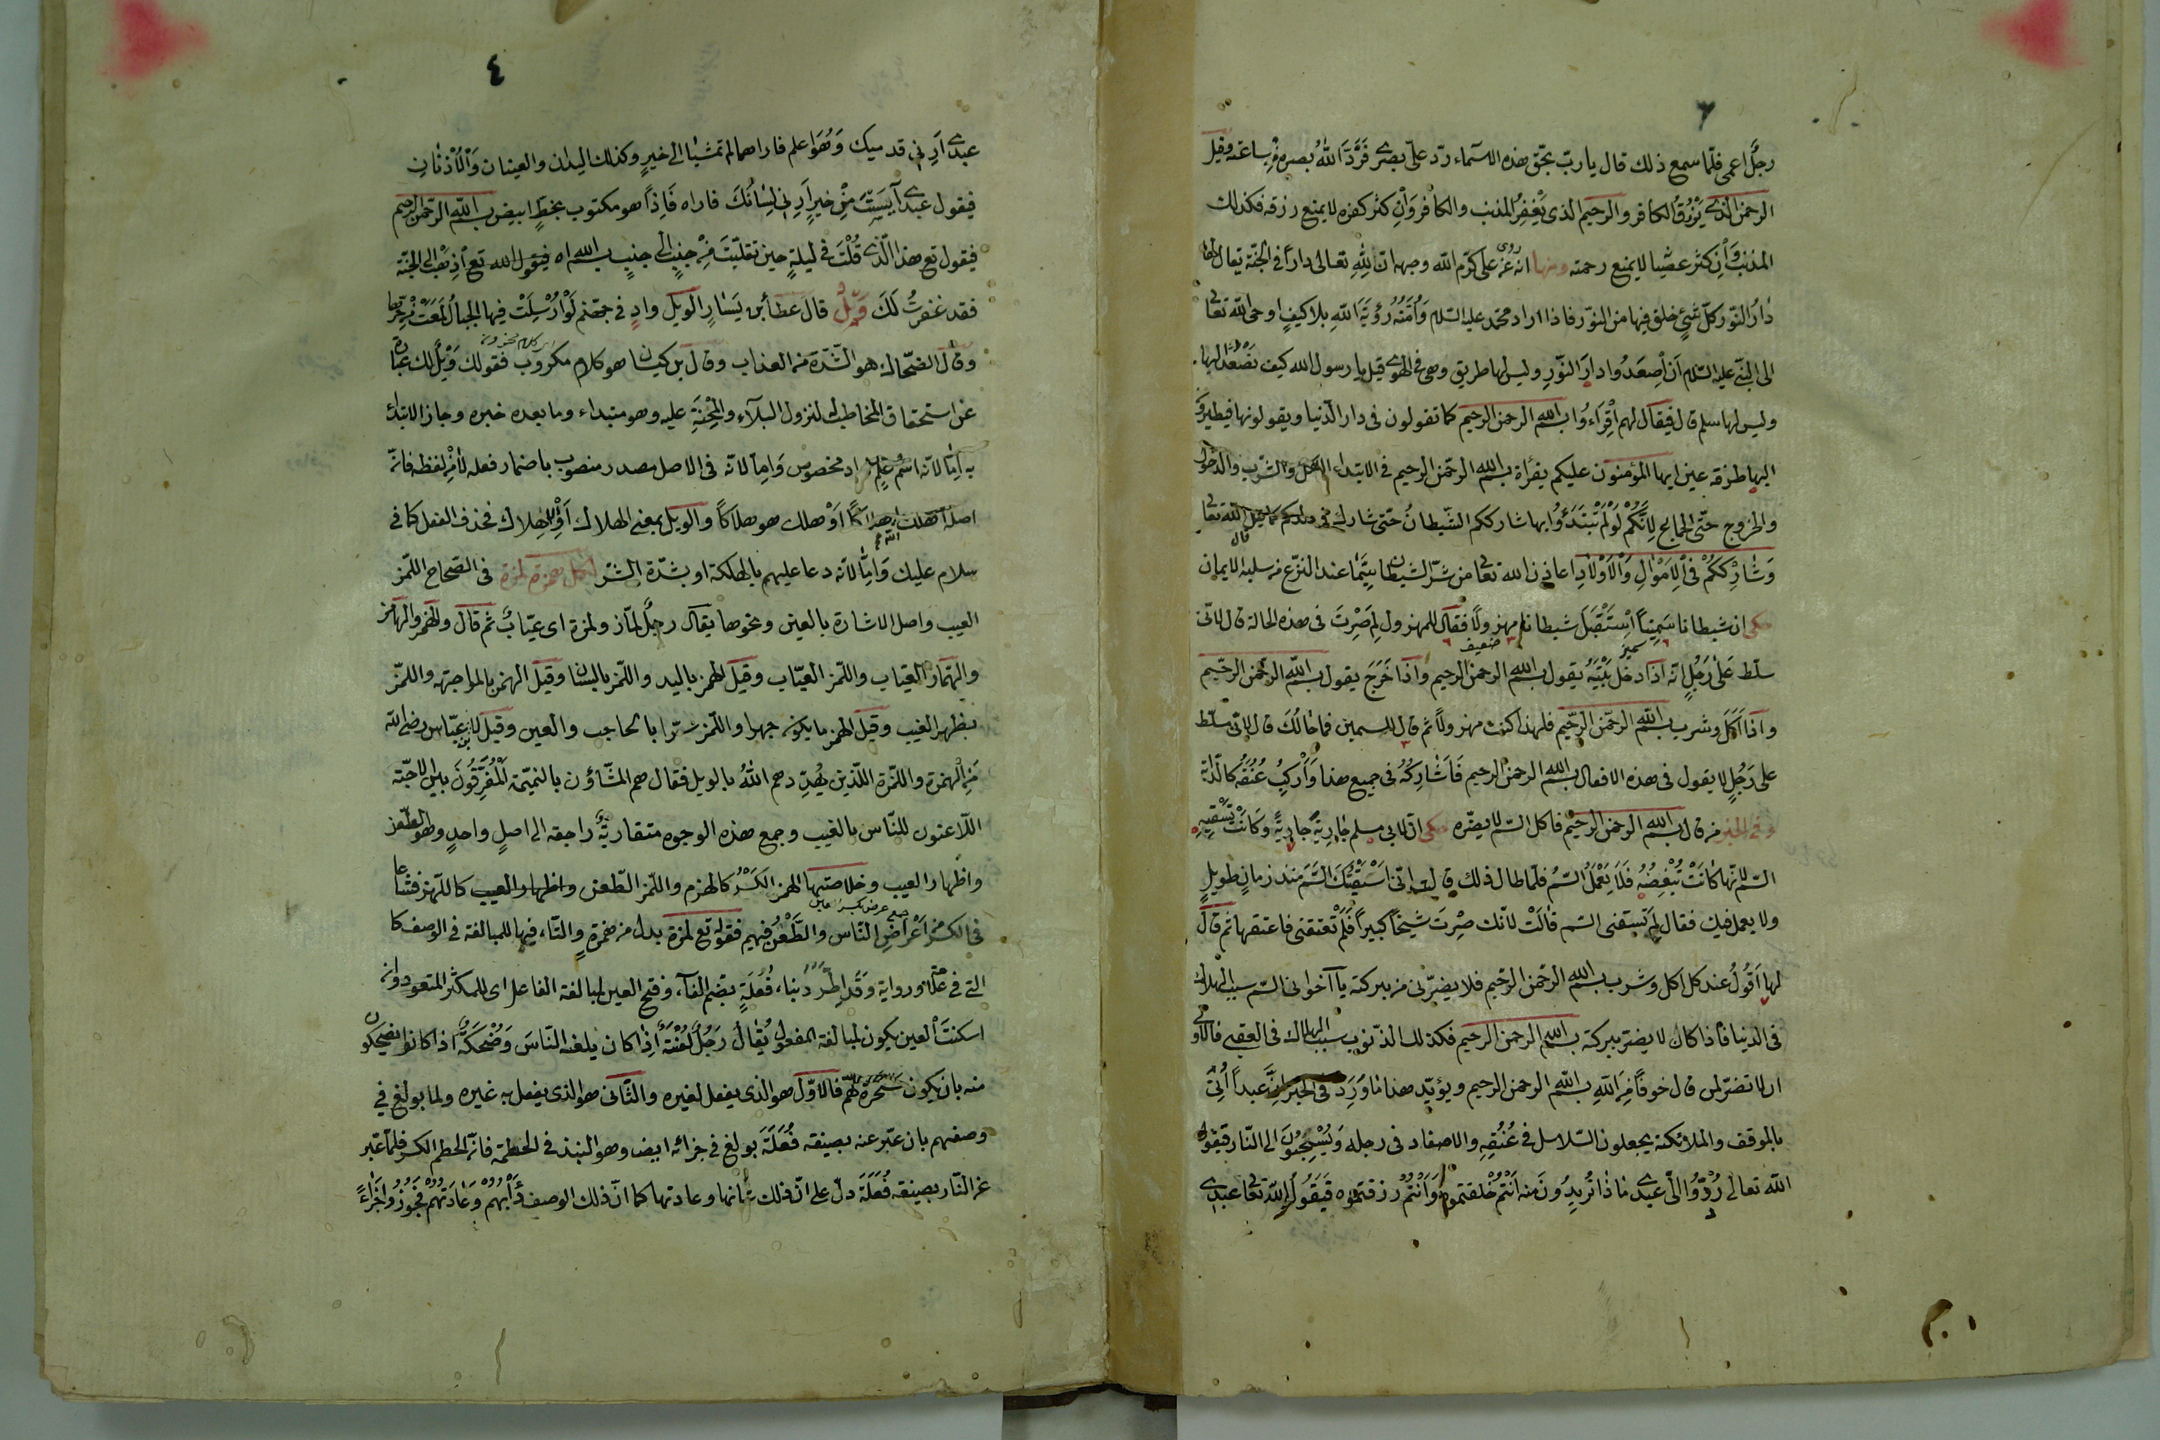 رجل اعمى فلما سمع ذلك قال يا رب بحق هذه الاسماء ردّ علىّ بصرى فَرَدَّ اللهُ بصره مِنْ ساعته وقيل
الرحمن الذى يَرْزُقُ الكافر والرحيم الذى يَغْفِرُ المذنب والكافر وَاِنْ كثر كفره لا يمنع رزقه فكذلك
المذنب وَاِنْ كثر عصيانه لا يمنع رحمته ومنها انه روى عن على كرّم الله وجهه ان لِلّٰهِ تعالى داراً فى الجنّة يقال لها
دارُ النّور كلّ شَىْءٍ خلق فيها من النّور فاذا اراد محمّد عليه السّلام وَاُمَّتُهُ رُؤْيَةَ اللهِ بلا كيفٍ اوحى الله تعالى
الى النبىّ عليه السّلام اَنْ اِصْعَدُوا دارَ النّورِ وليس لها طريق وهى فى الهوى قيل يا رسول الله كيف يَصْعَدُ اليها
وليس لها سلم قال فيقال لهم اِقْرَءُوا بسم الله الرحمن الرحيم كما تقولون فى دار الدّنيا ويقولونها فيطيرون
اليها طرفة عين ايها المؤمنون عليكم بقرأة بسم الله الرحمن الرحيم فى الابتداء الاكل والشّرب والدخول
والخروج حتّى الجماع لِاَنَّكُمْ لَوْ لَمْ تَبْتَدِؤُا بها شارككم الشّيطانُ حتّى شارك فى اولادكم كما قال الله تعالى
وَشَارِكْهُمْ فِى الْاَمْوَالِ وَالْاَوْلَادِ اعاذنا الله تعالى من شرّ الشيطان سِيَّمَا عند النّزع من سلب الايمان
حكى ان شيطانا سَمِيناً اِسْتَقْبَلَ شيطانا مهزولًا فقال للمهزول لِمَ صِرْتَ فى هذه الحالة قال لانّى
ضعيف
سلّط عَلٰى رَجُلٍ انّه اذا دخل بَيْتَهُ يقول بسم الله الرحمن الرحيم واذا خَرَجَ يقول بسم الله الرحمن الرحيم
واذا اَكَلَ وشرب بسم الله الرحمن الرحيم فلهذا كنت مهزولاً ثم قال للسمين فما حَالُكَ قال لانّى سلّط
على رَجُلٍ لا يقول فى هذه الافعال بسم الله الرحمن الرحيم فَاُشَارِكُهُ فى جميع هذا وَاَرْكَبُ عُنُقَهُ كالدّابّة
وفى الخبر من قال بسم الله الرحمن الرحيم فاكل السّم لا يضرّه حكى انّ لابى مسلم جَارِيَةً وكَانَتْ تَسْقِيهِ
السّم لانّها كَانَتْ تُبْغِضُهُ فَلَا يَعْمَلُ السّمُ فلمّا طال ذلك قالت انّى اَسْقَيْتُكَ السَّمَ منذ زمان طويل
ولا يعمل فيك فقال لِمَ تسقنى السّم قالَتْ لانّك صِرْتَ شيخاً كبيراً فَلَمْ تعتقنى فاعتقها ثمّ قال
لها اَقُولُ عند كل اكل وشرب بسم الله الرحمن الرحيم فلا يضرّنى من بركته يا اخوانى السّم سبب الهلاك
فى الدنيا فاذا كان لا يضرّ ببركة بسم الله الرحمن الرحيم فكذلك الذّنوب سبب الهلاك فى العقبى فالاولى
ان لا تضرّ لمن قال خوفاً مِنَ اللهِ بسم الله الرحمن الرحيم ويؤيّد هذا مَا وَرَدَ فى الخبر اِنَّ عبداً اُتِىَ
بالموقف والملائكة يجعلون السّلاسل فى عُنُقِهِ والاصفاد فى رجله وَيُسْحَبُونَ الى النّار فيقول
الله تعالى رُدُّوا الىّ عبدى مَاذَا تُرِيدُونَ منه اَنْتُمْ خلقتموه وَاَنْتُمْ رزقتموه فَيَقُولُ الله تعالى عبدى
٤
عبدى اَرِنِى قدميك وَهُوَ اعلم فاراهما لم تمشيا الى خيرٍ وكذلك اليدان والعينان وَالْاُذْنَانِ
فيقول عبدى آيَسْتَ مِنْ خيرٍ اَرِنِى لِسَانَكَ فاراه فَاِذاً هو مكتوب بخطٍّ ابيض بسم الله الرحمن الرحيم
فيقول تع هذا الّذى قُلْتَ فى ليلةٍ حين تقلّبتَ مِنْ جنبٍ الى جنبٍ بسم الله اه فيقول الله تع اِذْهَبْ الى الجنّة
فقد غفرتُ لَكَ وَيْلٌ قال عطأ بن يَسَارٍ الويل وادٍ فى جهنم لَوْ اُرْسِلَتْ فيها الجبالُ لَمَعَتْ من حرّها
وقال الضحّاك هو الشّدّة من العذاب وقال بن كيسان هو كلام مكروب فقولك وَيْلٌ لك عبارة
عن استحقاق المخاطب لنزول البلآء والمِحْنَةِ عليه وهو مبتداء وما بعده خبره وجاز الابتداء
به امّا لانّه اسْمُ علمٍ وادٍ مخصوص وَاِمّا لانّه فى الاصل مصدر منصوب باضمار فعله لا مِنْ لفظه فانّه
اصله اهلك هلاكاً اَوْ هلك هو هلاكاً والويل بمعنى الهلاك اَوْ الاهلاك فحذف الفعل كما فى
سلام عليك وَاِمّا لانّه دعا عليهم بالهلكة او بشدّة الشّر لكل همزة لمزة فى الصّحاح اللّمز
العيب واصل الاشارة بالعين ونحوها يقال رجلٌ لمّاز ولمزة اى عيّابٌ ثمّ قال والهمز والهامز
والهمّاز العيّاب واللّمز العيّاب وقيل الهمز باليد واللّمز باللسان وقيل الهمز بالمواجهة واللّمز
بظهر الغيب وقيل الهمز ما يكون جهرا واللّمز سترا بالحاجب والعين وقيل لابن عبّاس رضى الله
مَنِ الْهمزة واللمزة اللّذين يُهَدِّدهم اللهُ بالويل فقال هم المشّاؤن بالنميمة اَلْمُفَرِّقُونَ بين الاحبّة
اللّاعنون للنّاس بالغيب وجمع هذه الوجوه متقاربةٌ راجعة الى اصلٍ واحدٍ وهو الطّعن
واظهار العيب وخلاصتها الهمز الكَسْرُ كالهزم واللّمز الطّعن واظهار العيب كاللّهز فشاعا
فى الكسر اَعْرَاضِ النّاس والطَّعْنِ فيهم فقوله تع لمزة بدل من همزةٍ والتّاء فيها للمبالغة فى الوصف كما
التى فى علّامة ورواية وقد اِطّرد بناء فُعَلَةٍ بضم الفآء وفتح العين لمبالغة الفاعل اى للمكثر المتعود وان
اسكنت العين يكون لمبالغة المفعول يُقَالُ رَجُلٌ لُعْنَةٌ اِذَا كان يلعنه النّاسَ وَضُحْكَةٌ اذا كانوا يضحكون
منه بان يكون سُخْرَةً لهم فالاوّل هو الذى يفعل لغيره والثّانى هو الذى يفعل به غيره ولما بولغ فى
وصفهم بان عبّر عنه بصيغة فُعَلَةٍ بولغ فى جزائه ايضا وهو النبذ فى الحطمة فانّ الحطم الكسر فلمّا عبّر
عن النّار بصيغة فُعَلَةَ دلّ على انّ ذلك شانها وعادتها كما انّ ذلك الوصف دَأْبُهُمْ وَعَادَتُهُمْ فَجُوزُوا جَزَاءً